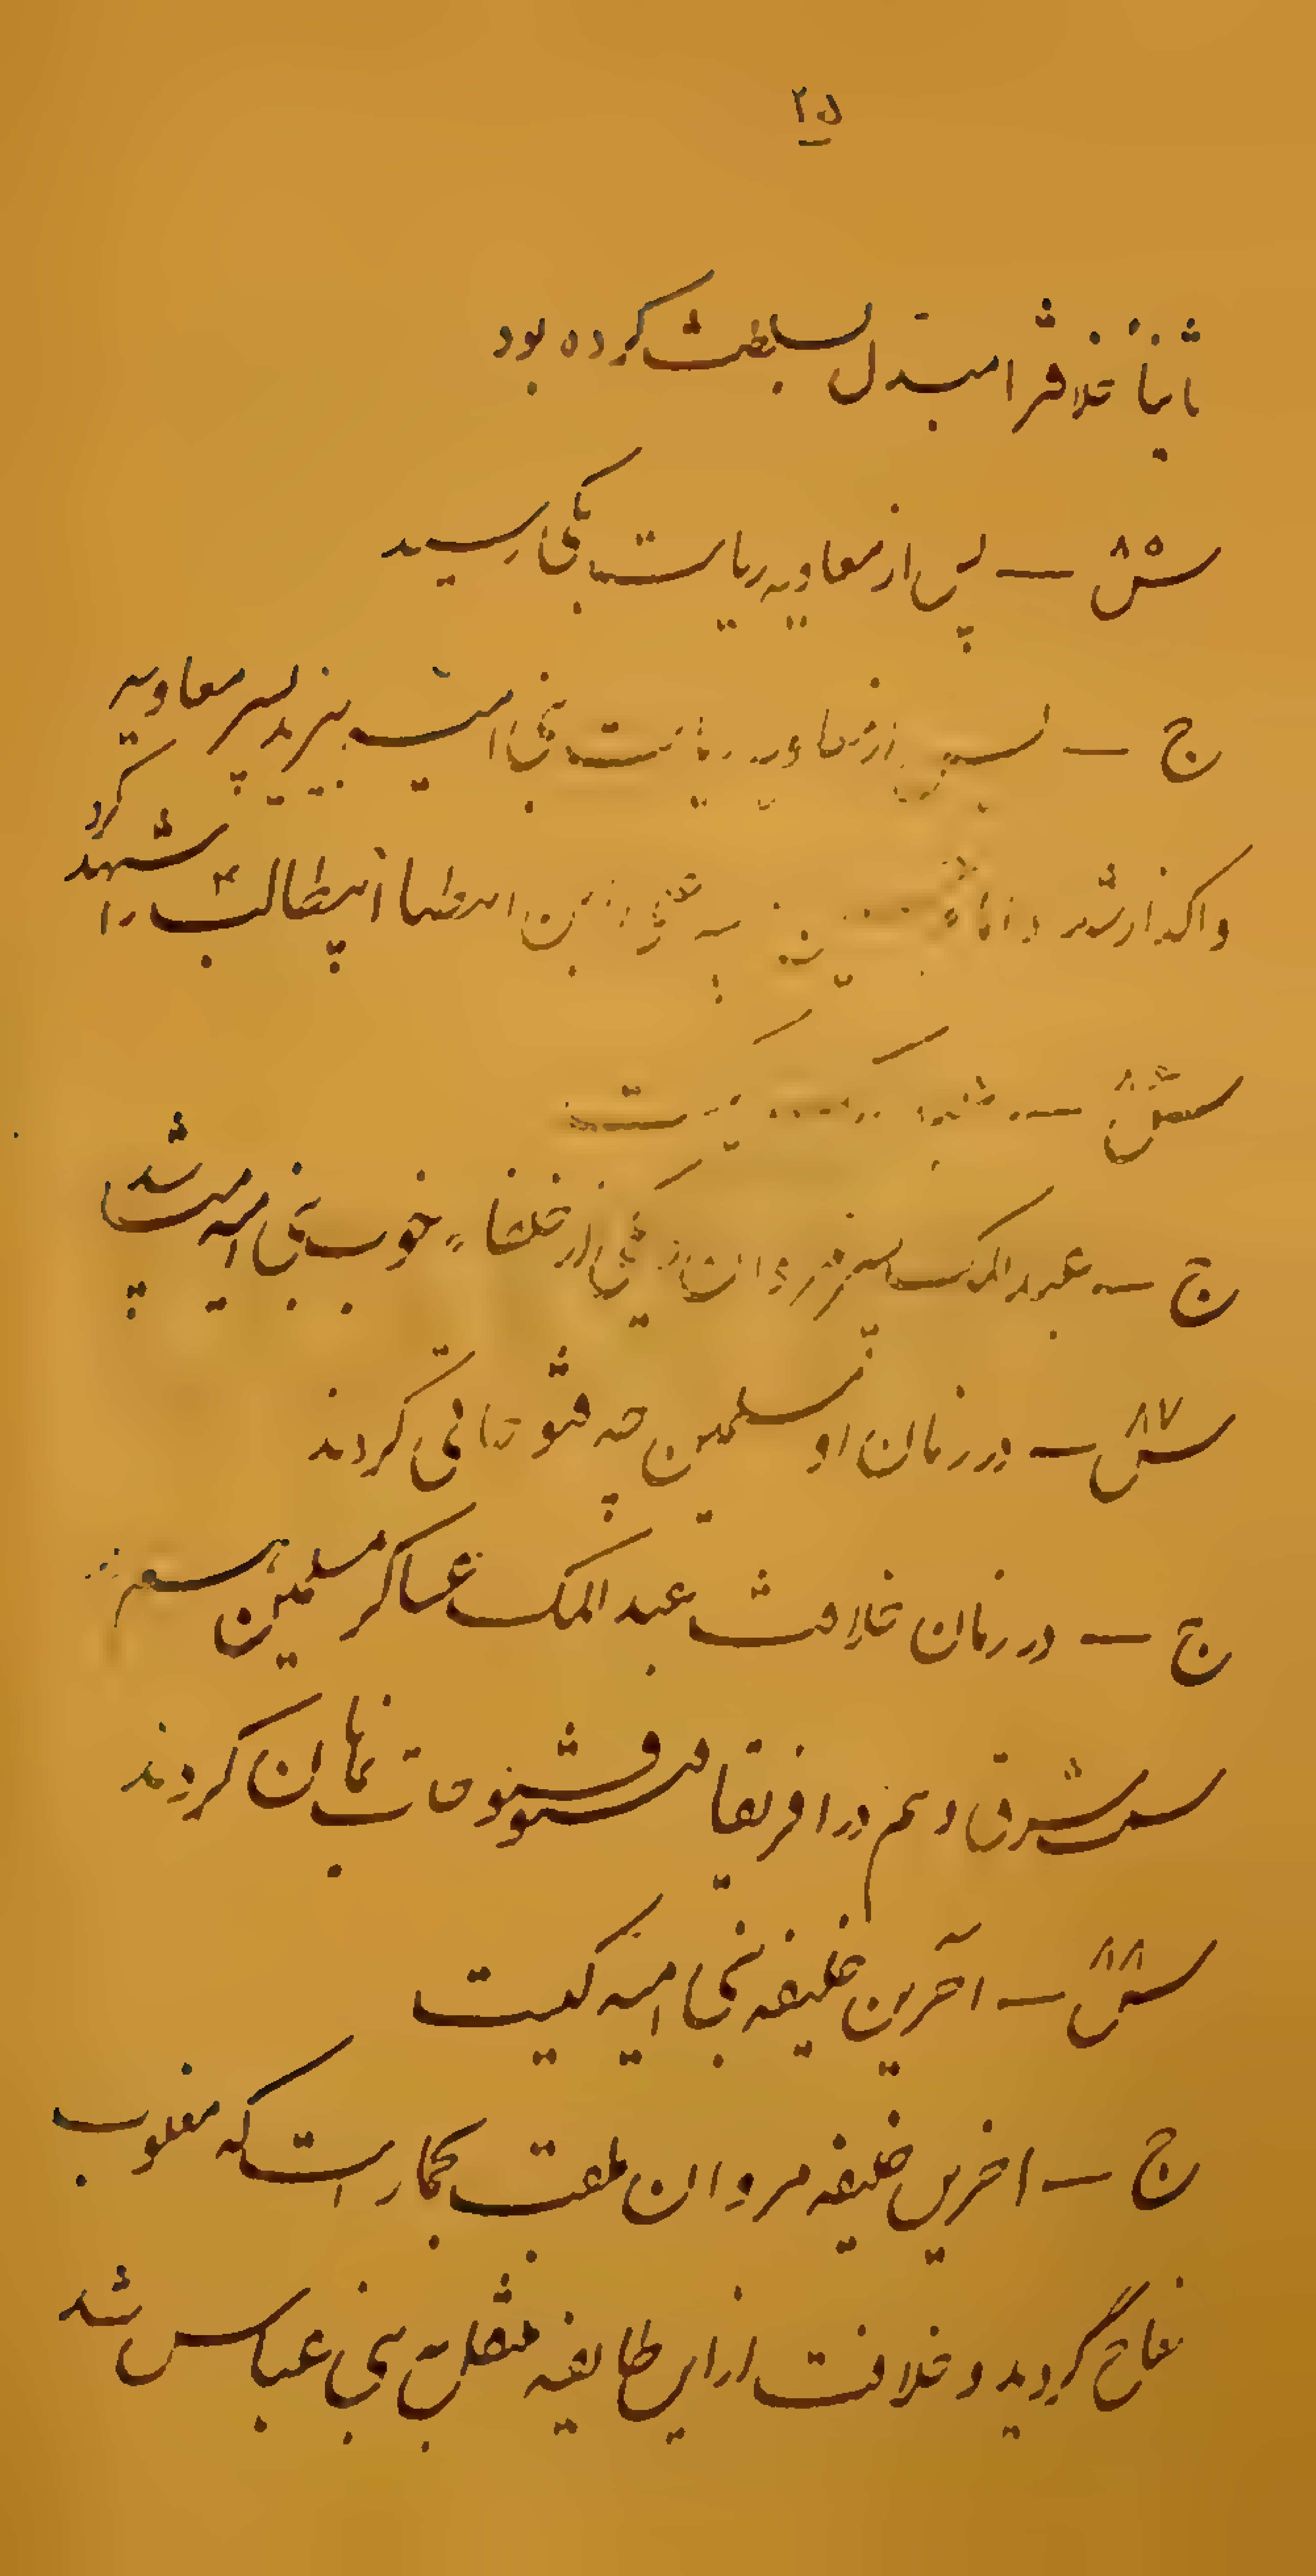 ۲۵
ثانیاً خلافترا مبدل بسلطنت کرده بود
س ۸۵ — پس از معاویه ریاست بکی رسید
ج — پس از معاویه ریاست بنی امیه بیزید پسر معاویه
واگذار شد و حسین بن علی بن ابیطالب ۴ را شهید کرد
س ۸۶ — کیست
ج — عبدالملک پسر مروان یکی از خلفاء خوب بنی امیه میباشد
س ۸۷ — در زمان او مسلمین چه فتوحاتی کردند
ج — در زمان خلافت عبدالملک عساکر مسلمین هم در
سمت شرقی و هم در افریقا فتوحات نمایان کردند
س ۸۸ — آخرین خلیفه بنی امیه کیست
ج — اخرین خلیفه مروان ملقب بحمار است که مغلوب
گردید و خلافت از این طایفه منتقل به بنی عباس شد